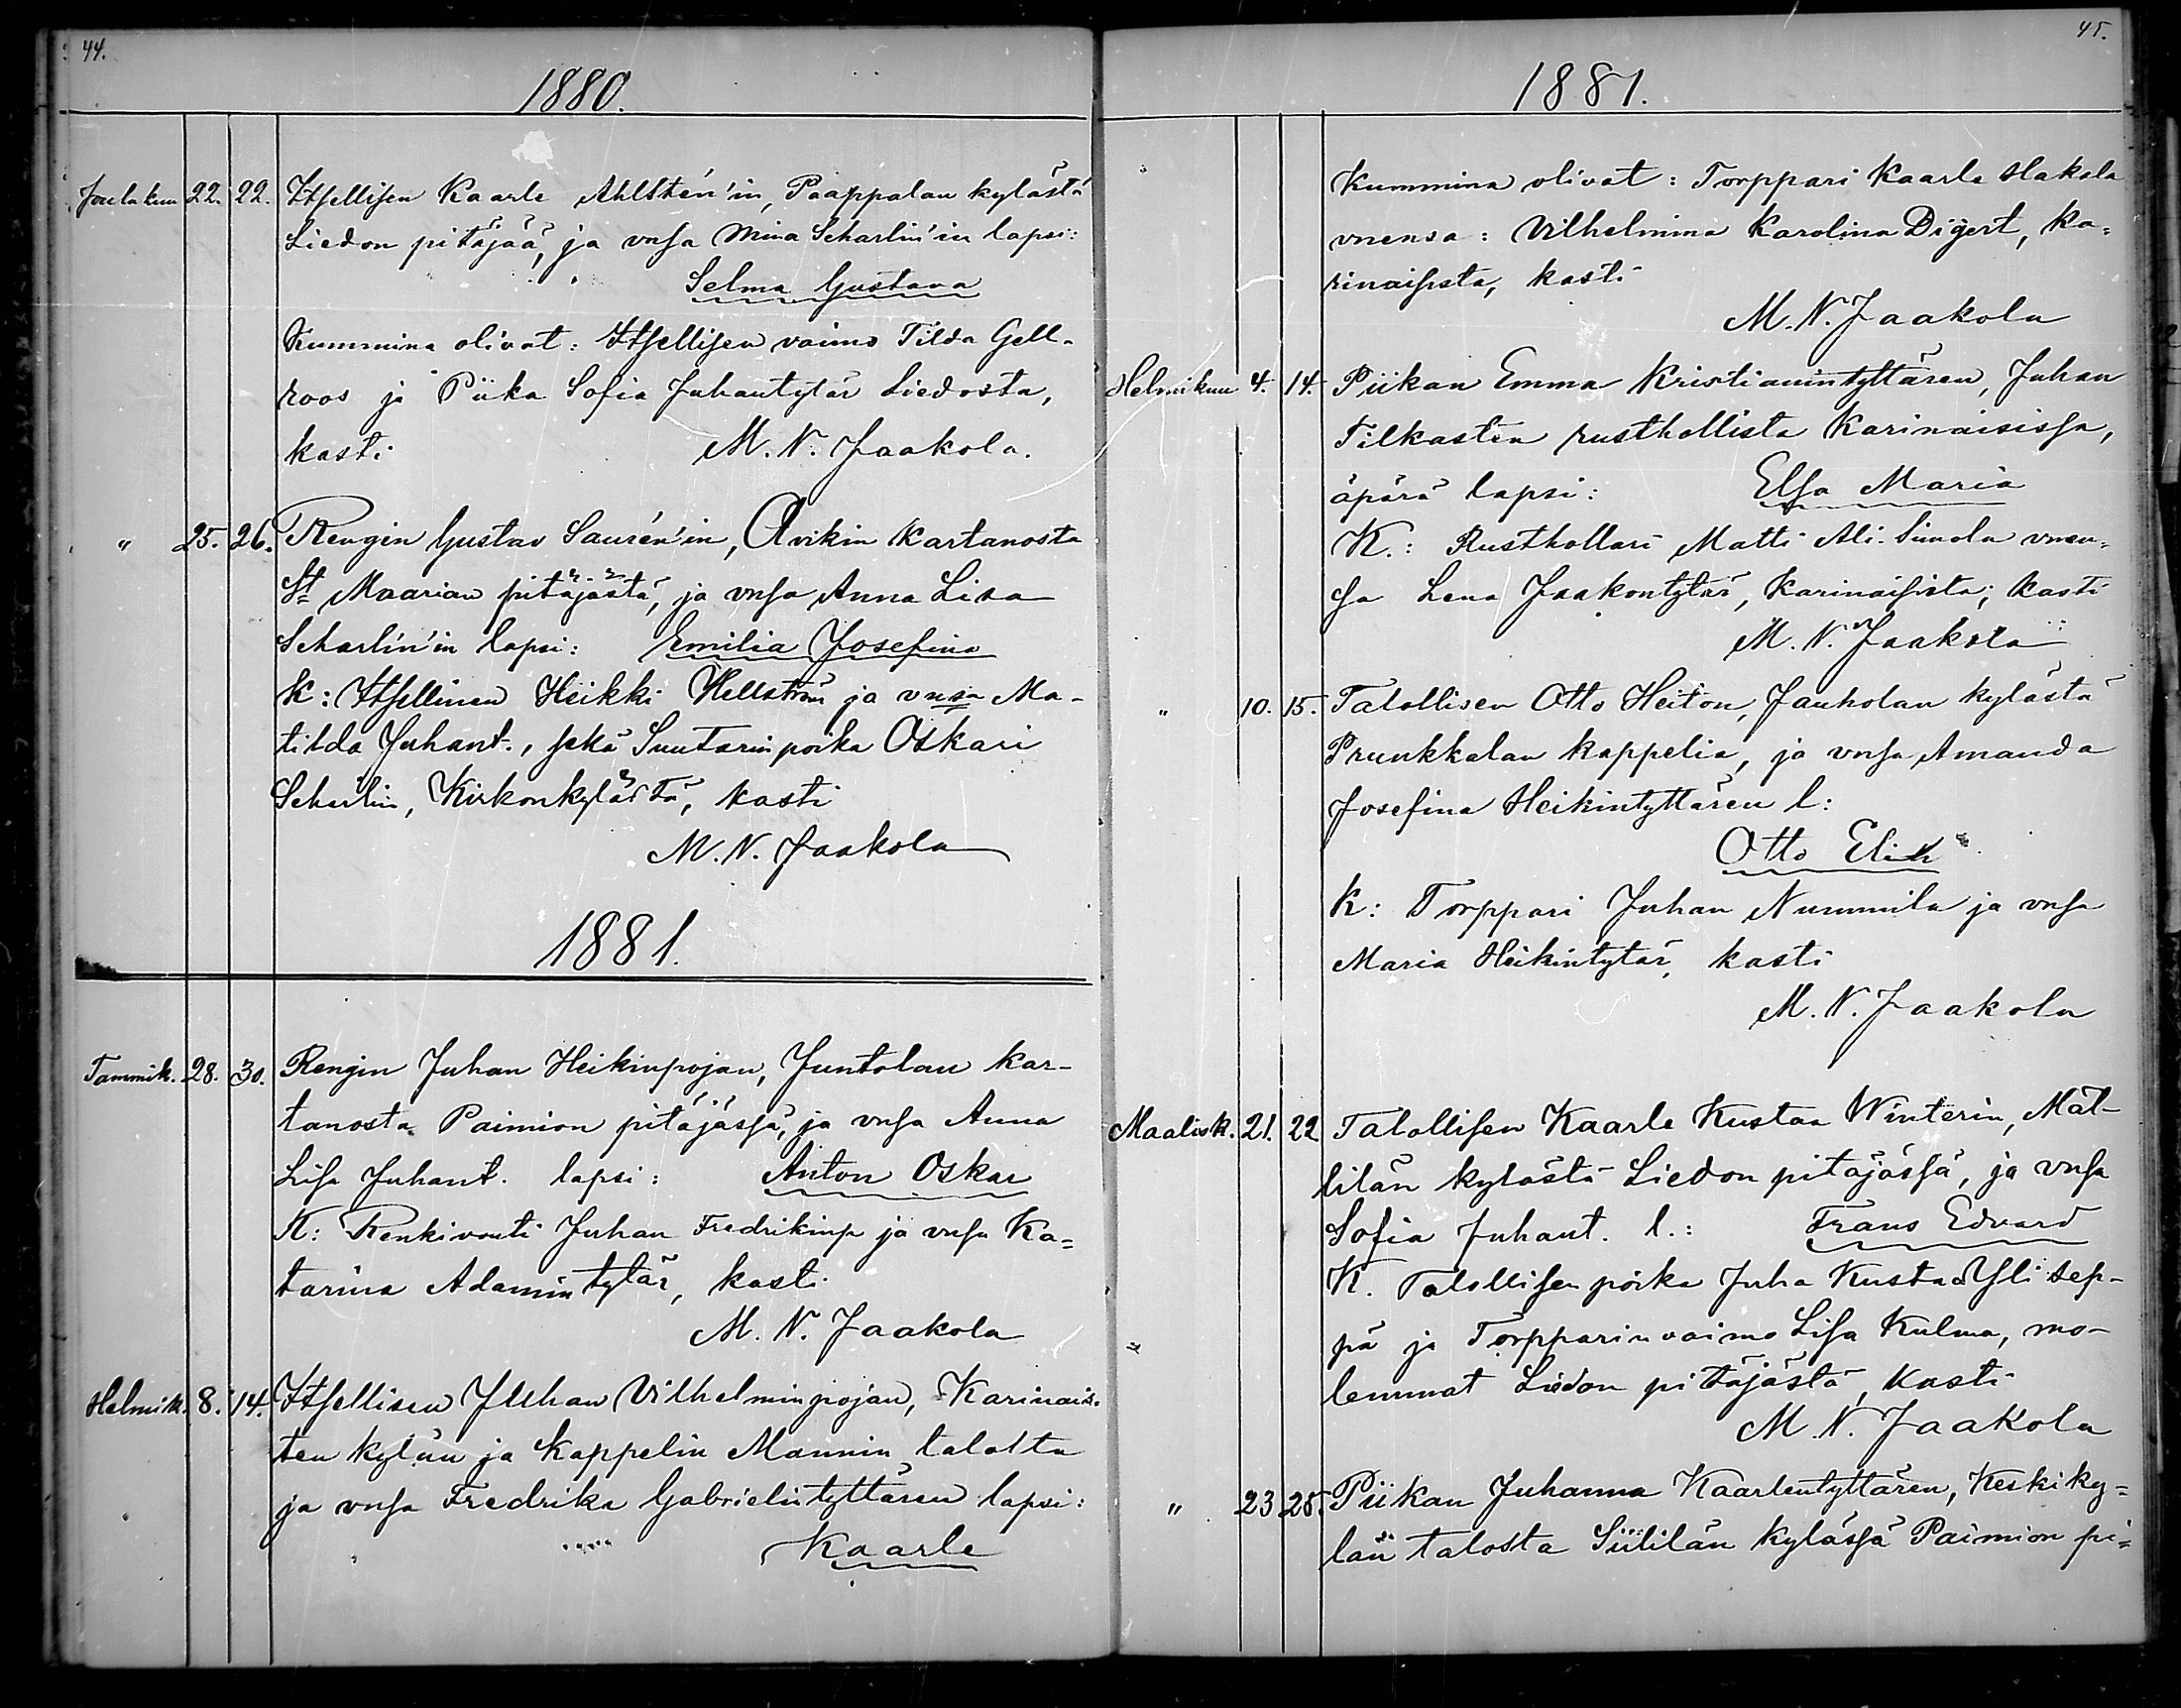 44.
1880.
Joulukuu 22. 22. Itsellisen Kaarle Ahlstén'in, Paappalan kylästä
Liedon pitäjää, ja vmsa Mina Scharlin'in lapsi:
Selma Gustava
Kummina olivat: Itsellisen vaimo Tilda Gell-
roos ja Piika Sofia Juhantytär Liedosta,
kasti M. N. Jaakola.
" 25. 26. Rengin Gustav Saurén'in, Avikin Kartanosta
St Maarian pitäjästä, ja vmsa Anna Lisa
Scharlin'in lapsi: Emilia Josefina
K: Itsellinen Heikki Hellström ja vmsa Ma-
tilda Juhant., sekä Suutarin poika Oskari
Scharlin, Kirkonkylästä, kasti
M. N. Jaakola
1881.
Tammik. 28. 30. Rengin Juhan Heikinpojan, Juntolan kar-
tanosta Paimion pitäjässä, ja vmsa Anna
Lisa Juhant. lapsi: Anton Oskar
K: Renkivouti Juhan Fredrikinp ja vmsa Ka=
tarina Adamintytär, kasti
M. N. Jaakola
Helmik. 8. 14. Itsellisen Juhan Vilhelminpojan, Karinais.
ten kylän ja kappelin Mannin talosta
ja vmsa Fredrika Gabrielintyttären lapsi:
Kaarle
45.
1881.
Kummina olivat: Torppari Kaarle Hakala
vmensa: Vilhelmina Karolina Digert, Ka=
rinaisista, kasti
M. N. Jaakola
Helmikuu 4. 14. Piikan Emma Kristianintyttären, Juhan
Tilkasten rusthollista Karinaisissa,
äpärä lapsi: Elsa Maria
K.: Rusthollari Matti Ali-Simola vmen=
sa Lena Jaakontytär, Karinaisista; kasti
M. N. Jaakola
" 10. 15. Talollisen Otto Heiton, Jauholan kylästä
Prunkkalan kappelia, ja vmsa Amanda
Josefina Heikintyttären l:
Otto Elis
K: Torppari Juhan Nummila ja vmsa
Maria Heikintytär, kasti
M. N. Jaakola
Maalisk. 21. 22 Talollisen Kaarle Kustaa Winterin, Mät-
lilän kylästä Liedon pitäjässä, ja vmsa
Sofia Juhant. l.: Frans Edvard
K. Talollisen poika Juha Kustaa Yli sep-
pä ja Torpparin vaimo Lisa Kulma, mo-
lemmat Liedon pitäjästä, kasti
M. N. Jaakola
" 23 25. Piikan Juhanna Kaarlentyttären, Keskiky=
län talosta Siililän kylässä Paimion pi=